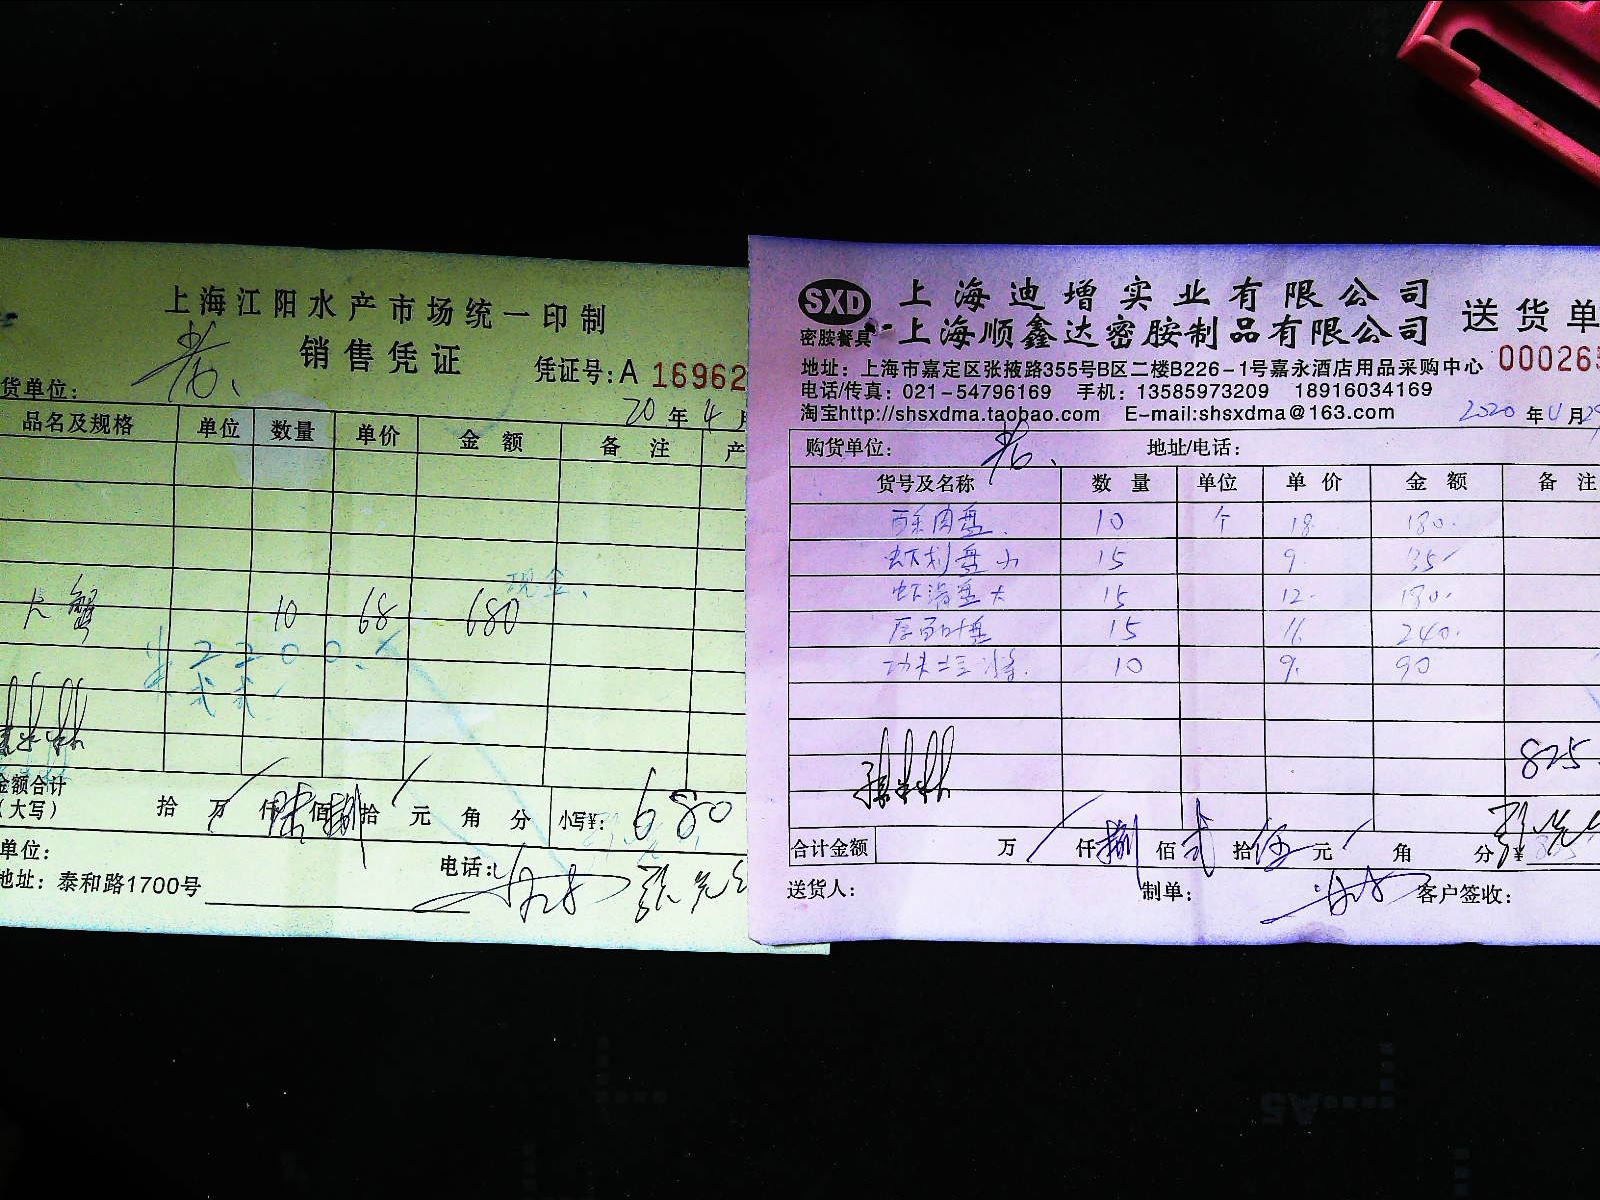 上海江阳水产市场统一印制
销售凭证
凭证号:A 16962
货单位:
20 年 4 月
品名及规格 单位 数量 单价 金额 备注 产
现金、
大蟹 10 68 680
2200.
金额合计
(大写) 拾 万 仟 陆 佰 捌 拾 元 角 分 小写¥: 680
单位:
电话:
地址: 泰和路1700号
SXD
密胺餐具
上海迪增实业有限公司
上海顺鑫达密胺制品有限公司
送货单
地址: 上海市嘉定区张掖路355号B区二楼B226-1号嘉永酒店用品采购中心
000265
电话/传真: 021-54796169 手机: 13585973209 18916034169
淘宝http://shsxdma.taobao.com E-mail:shsxdma@163.com
2020 年 4 月 29
购货单位: 地址/电话:
货号及名称 数量 单位 单价 金额 备注
10 个 18 180.
15 9. 135
15 12. 180.
15 16 240.
10 9. 90
825.
合计金额 万 仟 捌 佰 贰 拾 伍 元 角 分 ¥
送货人: 制单: 客户签收: